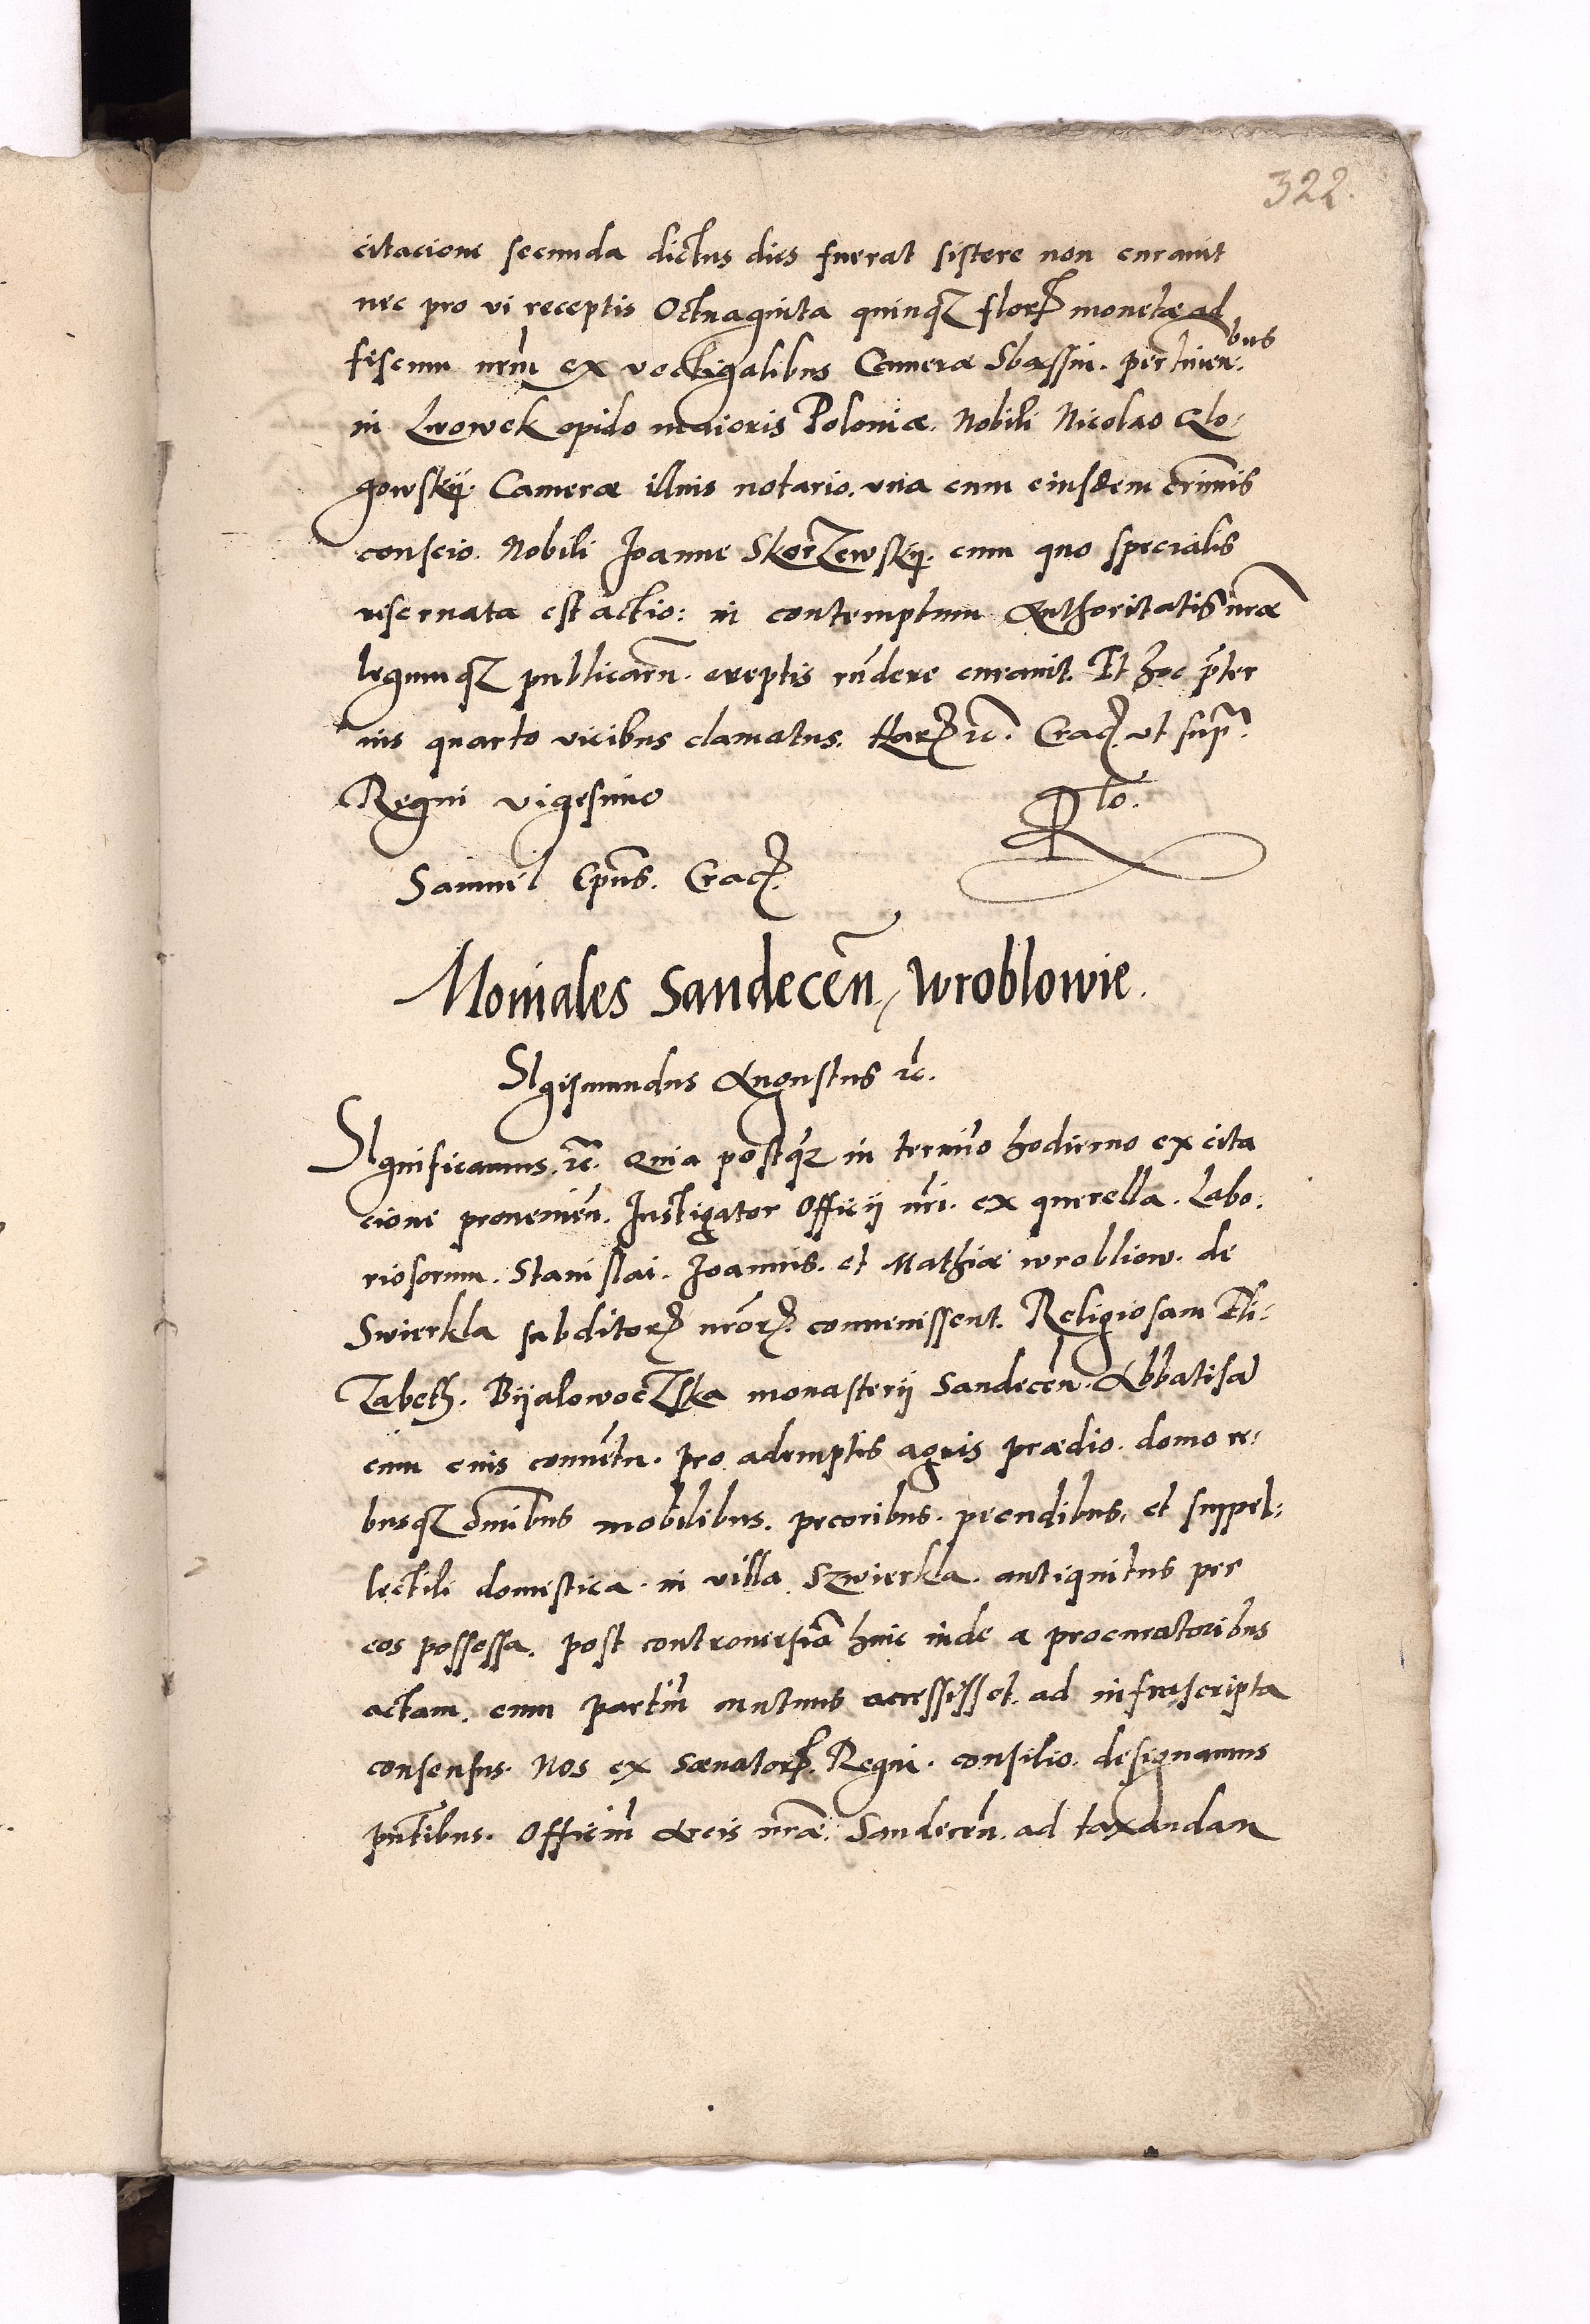 322.
citacione secunda dictus dies fuerat sistere non curauit
nec pro vi receptis Octuaginta quinqȝ florꝝ monetæ ad
fiscum nr̃m ex vectigalibus Cameræ Sbassin. pertinen.bus
in Lwowek opido maioris Poloniæ. Nobili Nicolao Glo-
gowskij. Cameræ illius notario. vna cum eiusdem criminis
conscio. Nobili Joanne Skorzewskij. cum quo specialis
reseruata est actio: in contemptum Authoritatis nr̃æ
legumqȝ publicarũ. ereptis rñdere curauit. Et hoc p̃ter
ius quarto vicibus clamatus. Harꝝ ꝛc. Cracꝭ. vt sup̃.
Regni vigesimo
Rtõ.
Samuel Ep̃us. Cracꝭ.
Moniales Sandeceñ, Wroblowie.
SIgismundus Augustus ꝛc.
SIgnificamus. ꝛc. Quia postq̃ȝ in termĩo hodierno ex cita
cione prouenieñ. Instigator Officij nr̃i. ex querella. Labo-
riosorum. Stanislai. Joannis. et Mathiæ wrobliow. de
Swierkla subditorꝝ nr̃orꝝ. conuenissent. Religiosam Eli-
zabeth. Bijalowoczska monasterij Sandeceñ. Abbatisã
cum eius conuẽtu. pro ademptis agris prædio. domo re-
busqȝ oĩnibus mobilibus. pecoribus. pecudibus, et suppel-
lectili domestica. in villa Szwierkla. antiquitus per
eos possessa. post controuersiã hinc inde a procuratoribus
actam. cum partiũ mutuus accessisset. ad infrascripta
consensus. Nos ex Sænatorꝝ. Regni. consilio. designamus
pñtibus. Officiũ Arcis nr̃æ. Sandeceñ. ad taxandam